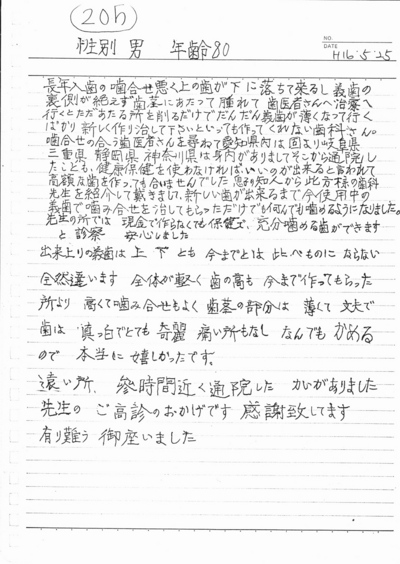 (20h)
性別 男 年齢80
NO.
DATE H16・5・25
長年入歯の噛合せ悪く上の歯が下に落ちて来るし義歯の
裏側が絶えず歯茎にあたって腫れて 歯医者さんへ治療へ
行くとただあたる所を削るだけでだんだん義歯が薄くなって行く
ばかり新しく作り治して下さいといっても作ってくれない歯科さん。
噛合せの合う歯医者さんを尋ねて愛知県内は固より岐阜県
三重県 静岡県 神奈川県は身内がありましてそこから通院し
たことも、健康保健を使わなければいいのが出来ると言われて
高額な歯を作っても合ませんでした 知人から此方様の歯科
先生を紹介して戴きまして、新しい歯が出来るまで今使用中の
義歯で噛み合せを治してもらっただけでも何んでも噛めるようになりました。
先生の所では 現金で作らなくても保健で、充分噛める歯ができます
と診察 安心しました
出来上りの義歯は上下とも今までとは比べものにならない
全然違います 全体が軽く 歯の高も 今まで作ってもらった
所より 高くて噛み合せもよく 歯茎の部分は 薄くて 丈夫で
歯は 真っ白でとても 奇麗 痛い所もなし なんでも かめる
ので 本当に 嬉しかったです。
遠い所、参時間近く通院した かいがありました
先生の ご高診のおかげです 感謝致してます
有り難う 御座いました